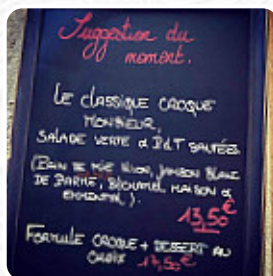 Suggestion du
moment.
Le classique croque
monsieur,
salade verte & PdT sautées
(Pain de mie, jambon blanc
de Parme, béchamel maison &
emmental).
13,50€
Formule croque + dessert au
choix 17,50€